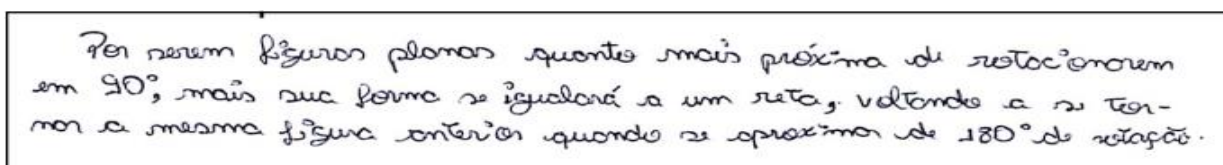 Por serem figuras planas quanto mais próxima de rotacionarem
em 90°, mais sua forma se igualará a um reta, voltando a se tor-
nar a mesma figura anterior quando se aproximar de 180° de rotação.